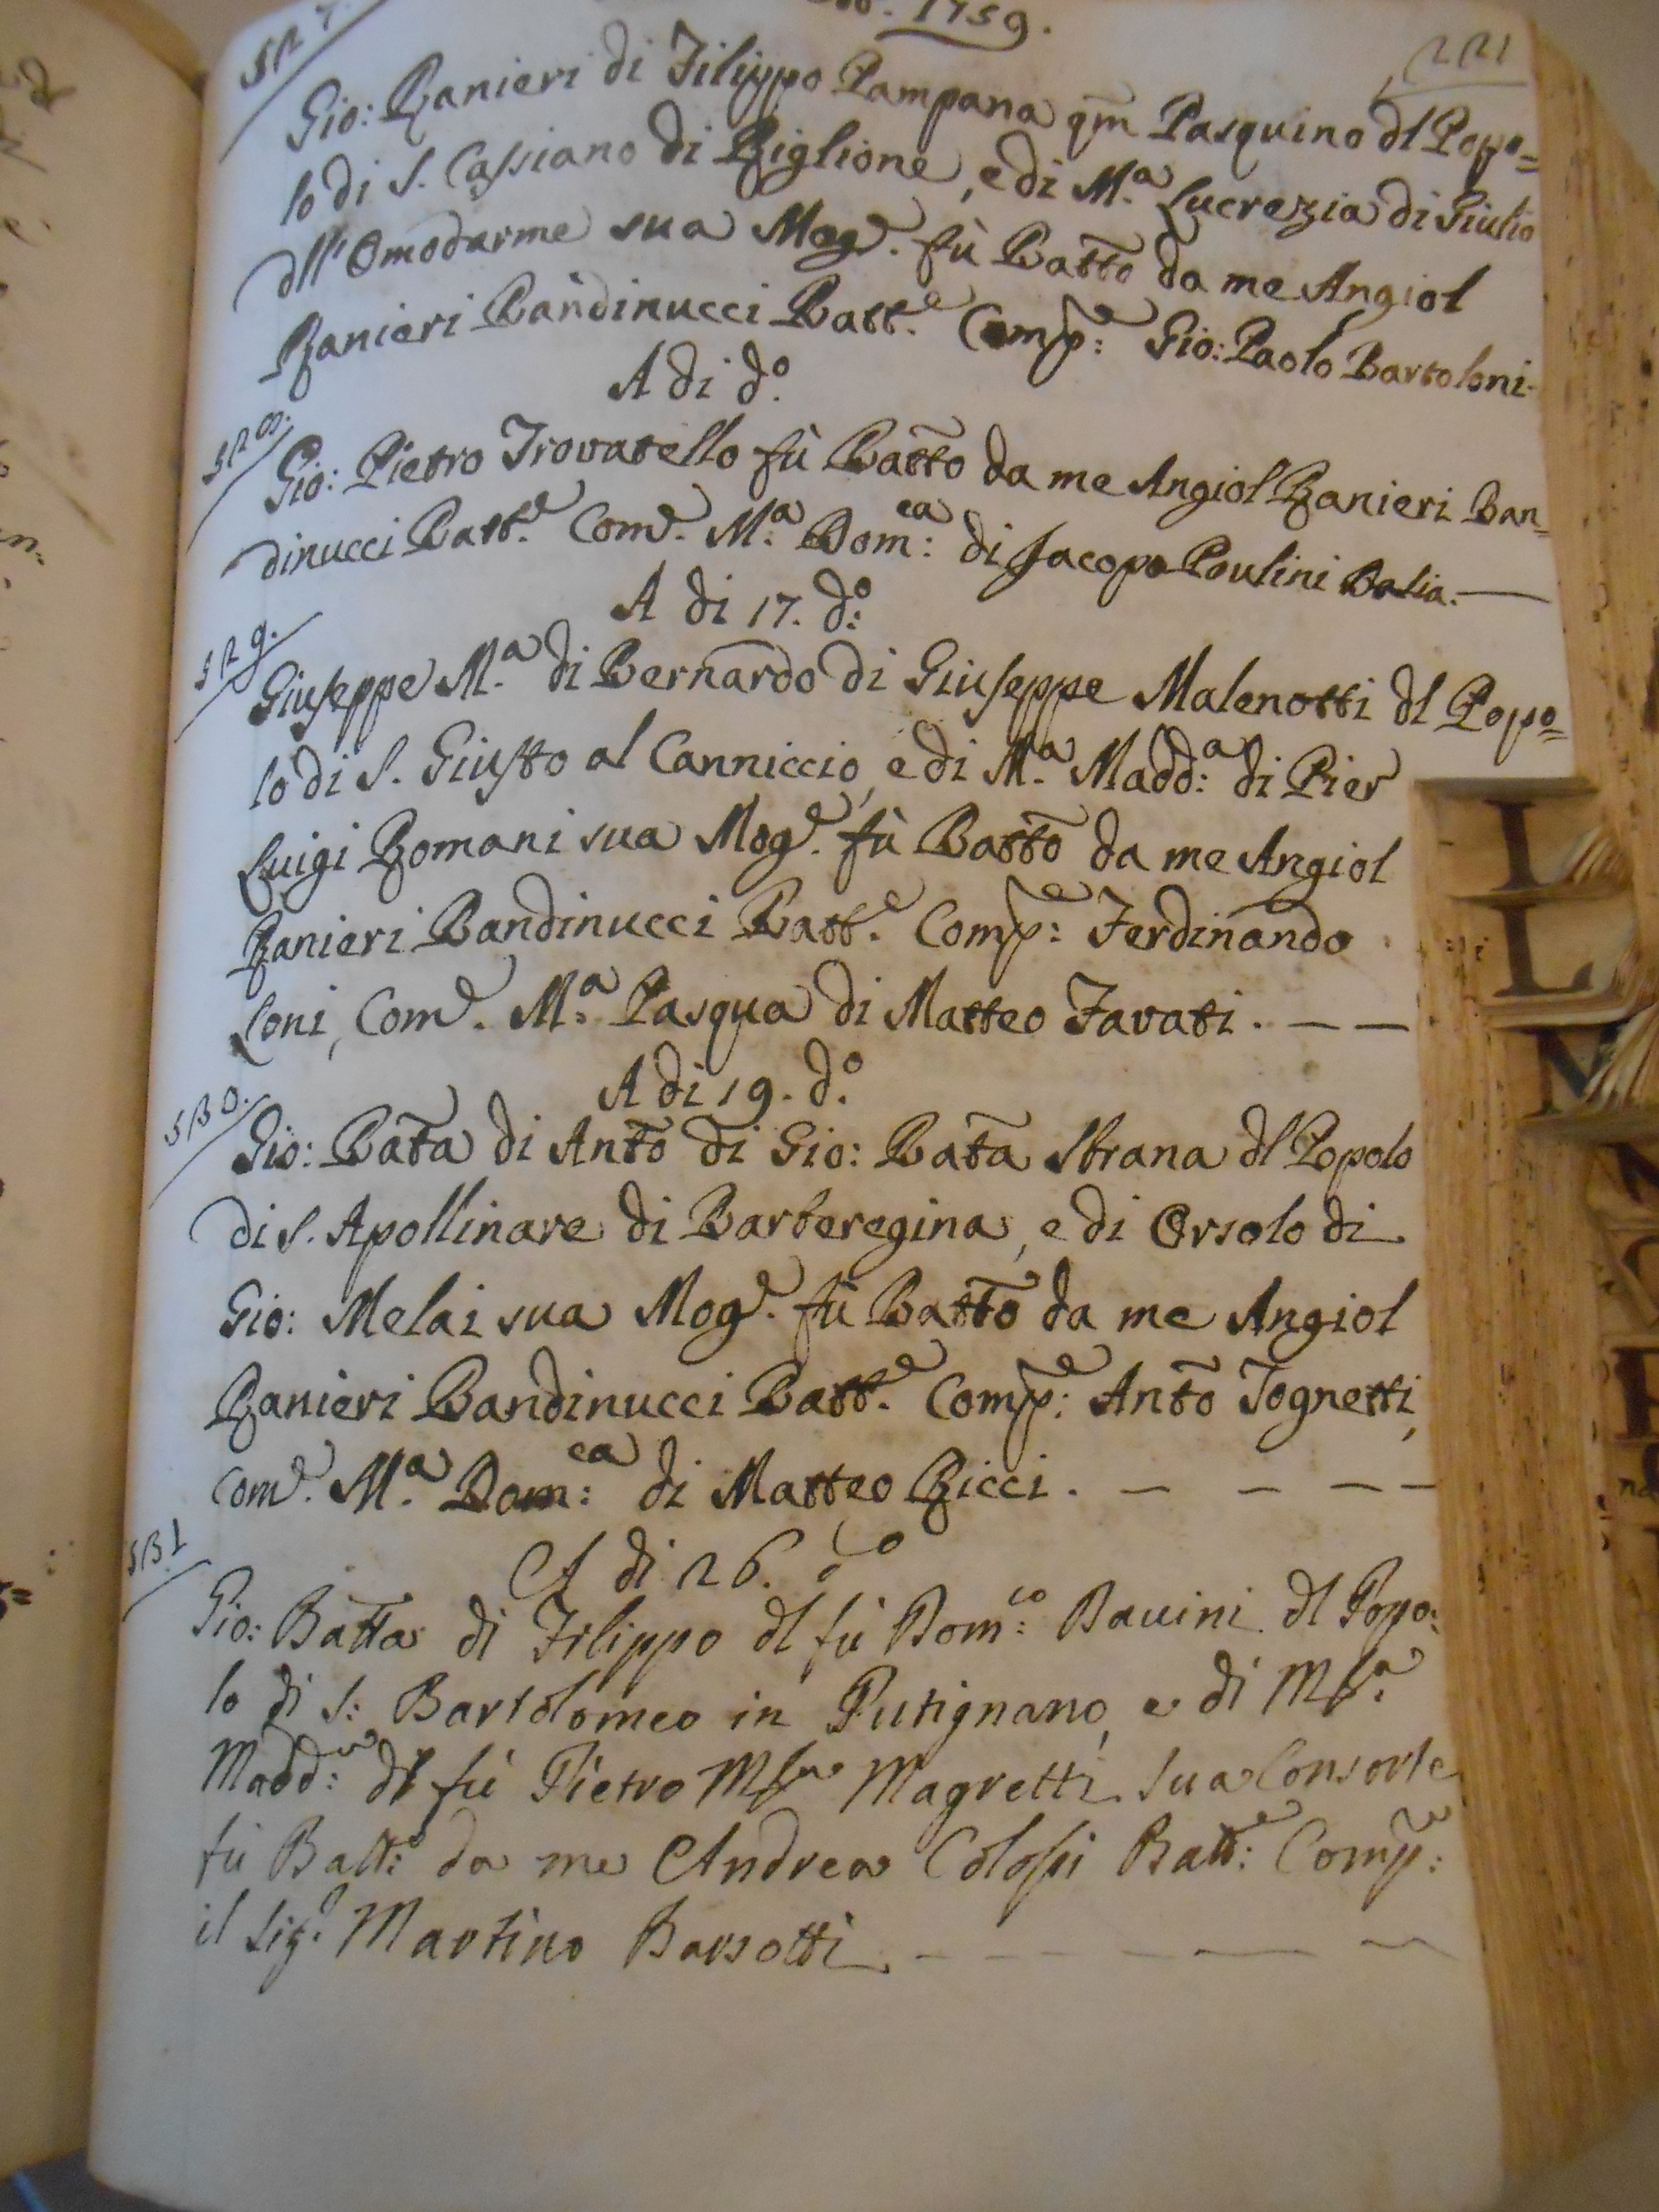 1759.
221
527.
Gio: Ranieri di Filippo Pampana qm Pasquino dl Popo=
lo di S. Cassiano di Riglione, e di M.a Lucrezia di Giulio
dll'Omodarme sua Mog.e fù Batto da me Angiol
Ranieri Bandinucci Batt.e Comp:e Gio: Paolo Bartoloni.
A di d.o
528.
Gio: Pietro Trovatello fù Batto da me Angiol Ranieri Ban=
dinucci Batt.e Com.e M.a Dom:ca di Jacopo Poulini Balia.—
A di 17. d:o
529.
Giuseppe M.a di Bernardo di Giuseppe Malenotti dl Popo=
lo di S. Giusto al Canniccio, e di M.a Madd:a di Pier
Luigi Romani sua Mog.e fù Batto da me Angiol
Ranieri Bandinucci Batt.e Comp:e Ferdinando
Loni, Com.e M:a Pasqua di Matteo Favati. — —
A di 19. d.o
530.
Gio: Bata di Anto di Gio: Bata Strana dl Popolo
di S. Apollinare di Barberegina, e di Orsolo di
Gio: Melai sua Mog.e fù Batto da me Angiol
Ranieri Bandinucci Batt.e Comp:e Anto Tognetti,
Com.e M.a Dom:ca di Matteo Ricci. — — — —
A di 26. do
531
Gio: Batta di Filippo dl fù Dom:co Bavini dl Popo:
lo di S: Bartolomeo in Putignano, e di M:a
Madd:a dl fù Pietro M Magretti sua Consorte
fù Batt:o da me Andrea Colosi Batt:e Comp:e
il Sig.r Martino Barsotti — — — — —